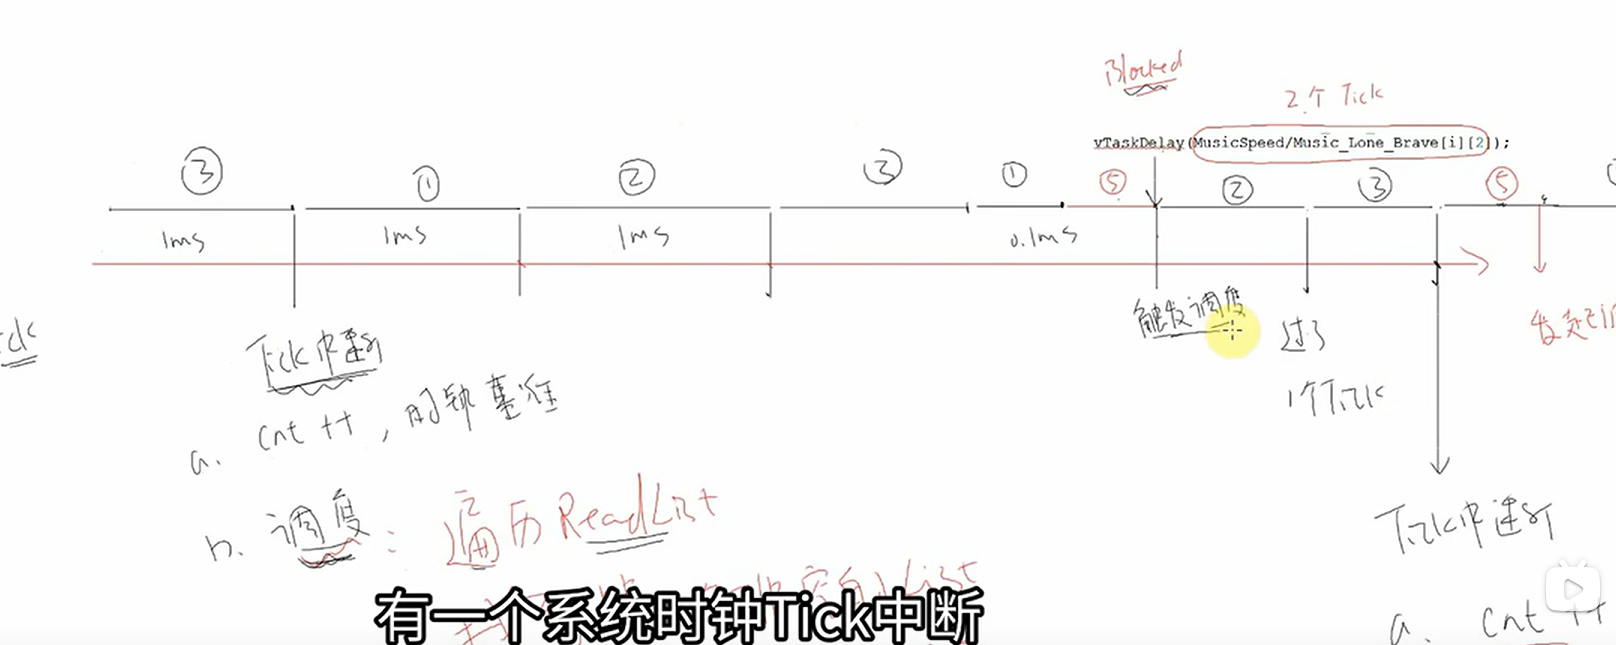 Blocked
2个 Tick
vTaskDelay(MusicSpeed/Music_Lone_Brave[i][2]);
③ ① ② ③ ① ⑤ ② ③ ⑤
1ms 1ms 1ms 0.1ms
触发调度
过了
1个Tick
Tick中断
a. cnt ++, 时钟基准
b. 调度: 遍历ReadList
List
Tick中断
a. cnt ++
有一个系统时钟Tick中断